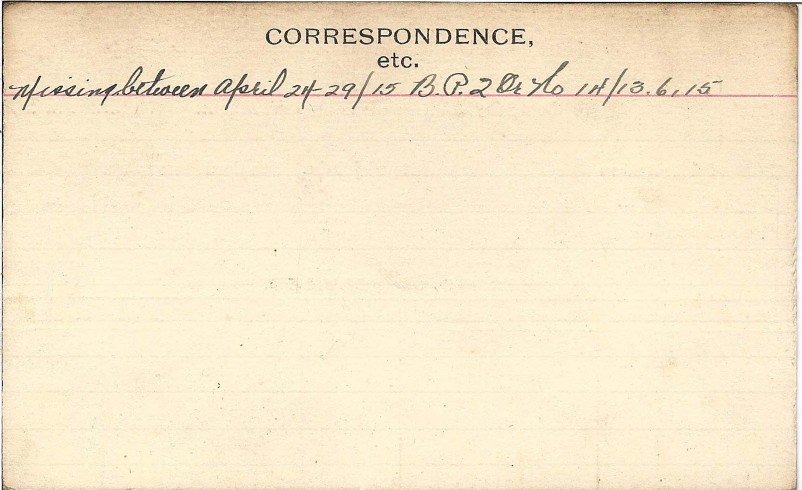 CORRESPONDENCE,
etc.
Missing between April 24-29/15 B.P. 2 Or No 14/13.6.15